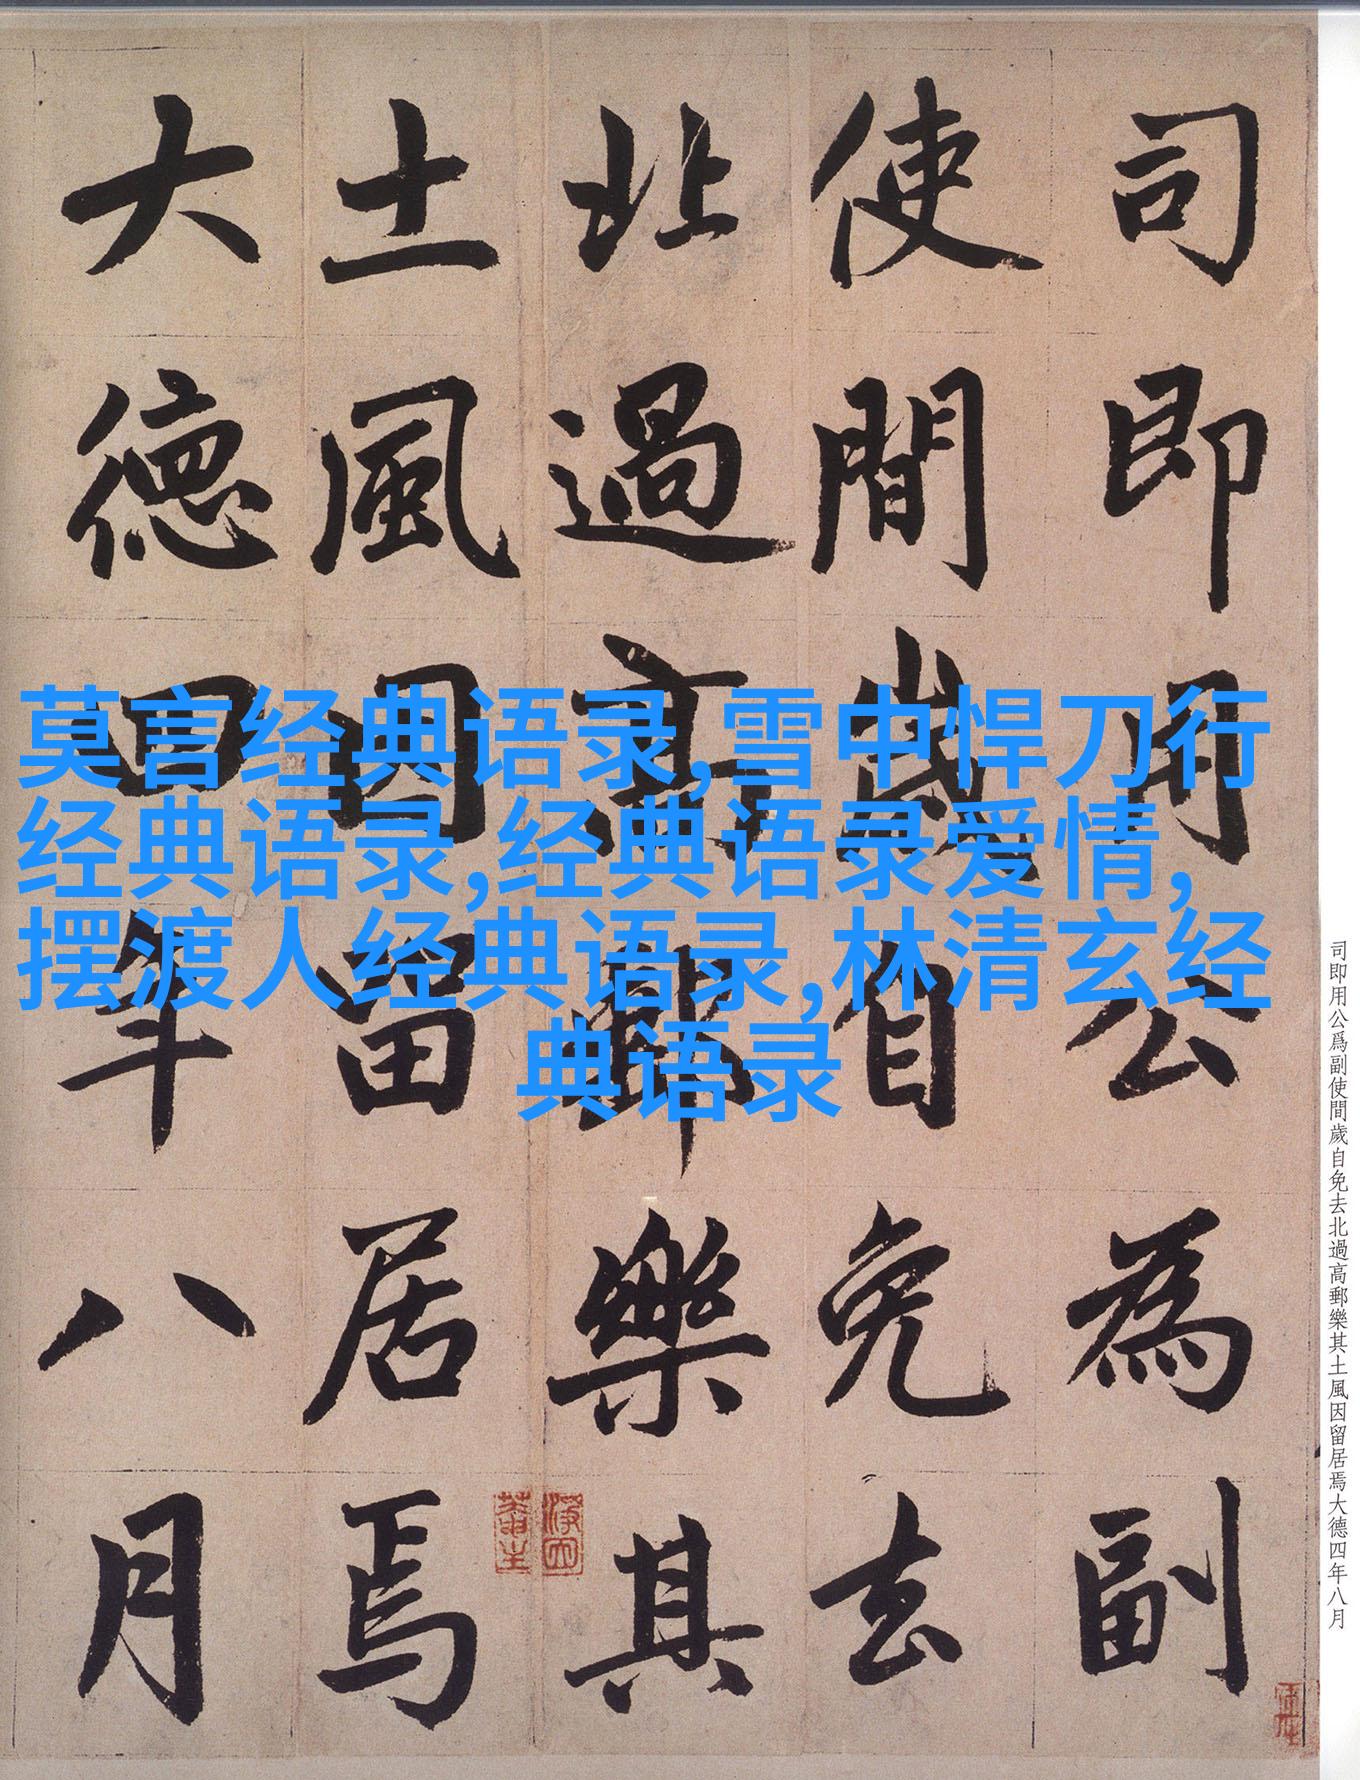 司即用公為副
使間歲自免去
北過高郵樂其
土風因留居焉
大德四年八月
莫言经典语录,雪中悍刀行
经典语录,经典语录爱情,
摆渡人经典语录,林清玄经
典语录
司即用公爲副使間歲自免去北過高郵樂其土風因留居焉大德四年八月